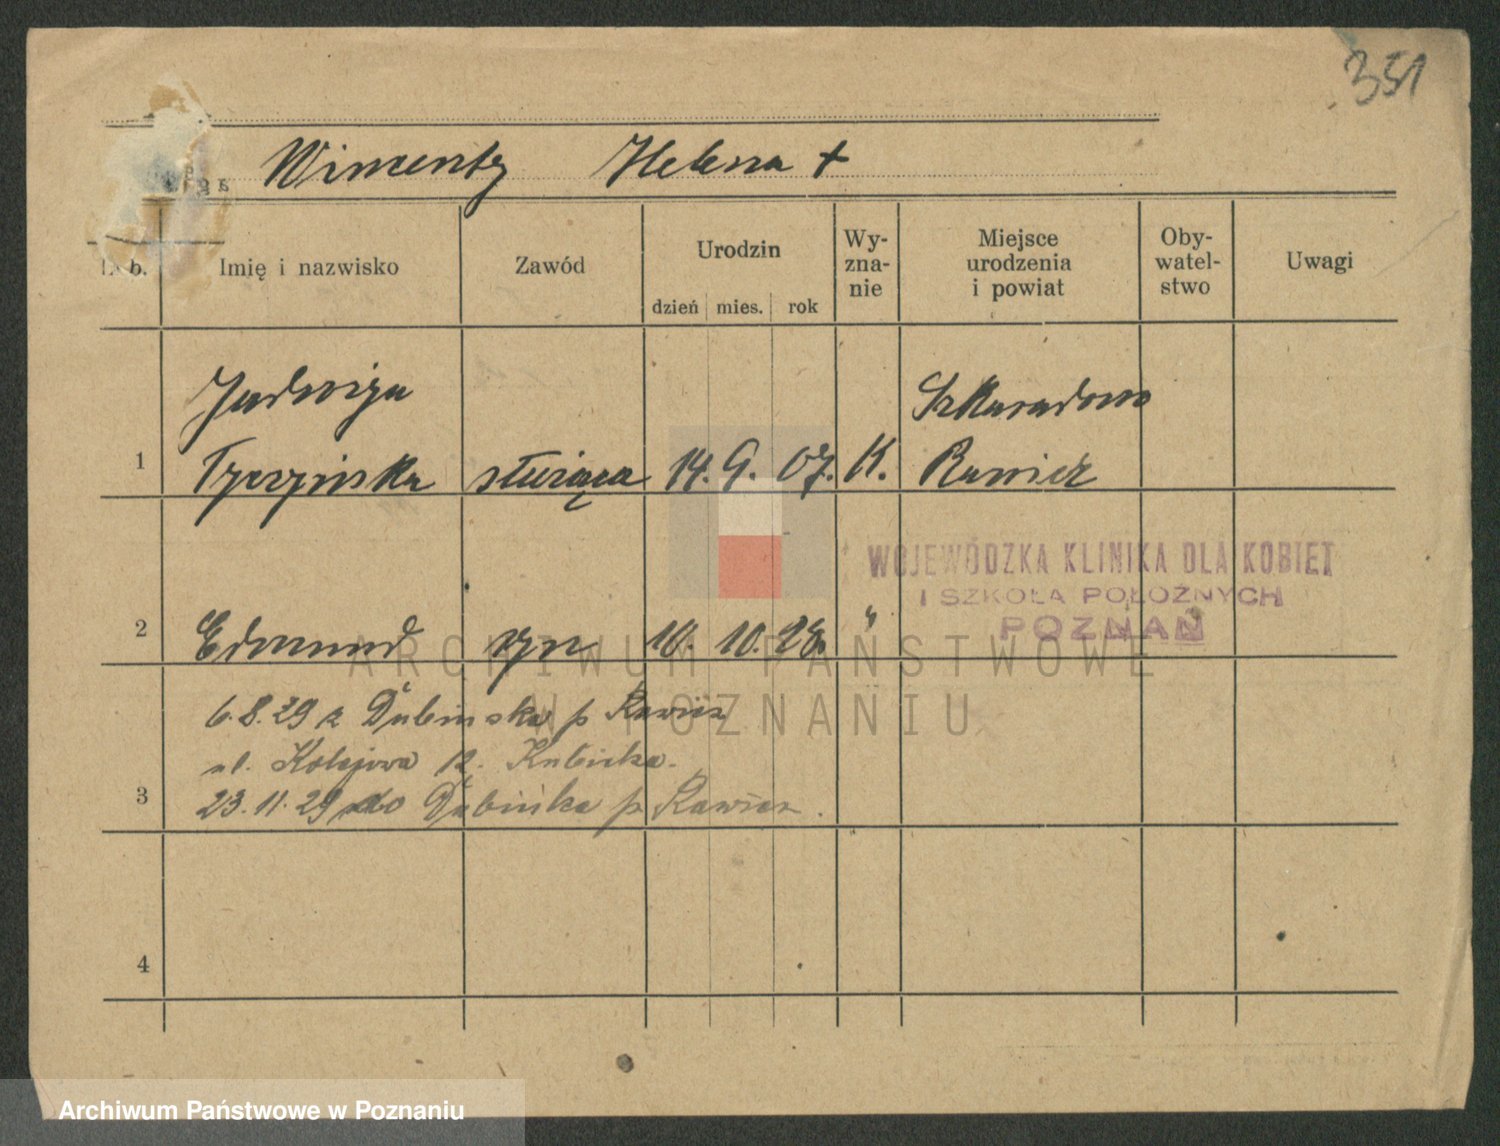 351
Wincenty Helena +
L. b. Imię i nazwisko Zawód Urodzin Wy-zna-nie Miejsce urodzenia i powiat Oby-watel-stwo Uwagi
dzień mies. rok
Jadwiga Szkaradowo
1 Tyczyńska służąca 14. 9. 07. K. Rawicz
WOJEWÓDZKA KLINIKA DLA KOBIET
I SZKOŁA POŁOŻNYCH
POZNAŃ
2 Edmund syn 10. 28. "
ARCHIWUM PAŃSTWOWE
W POZNANIU
6.8.29 z Dubinska p Rawicz
ul. Kolejowa 12. Kubicka.
3 23.11.29 do Dubinka p Rawicz.
4
Archiwum Państwowe w Poznaniu